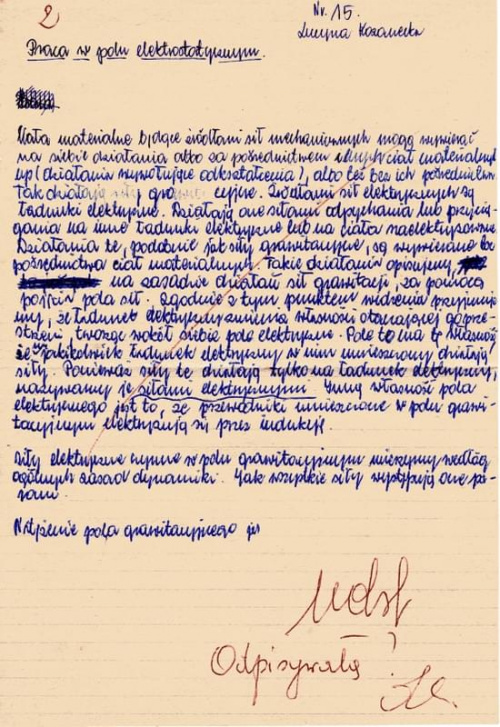 2
Nr. 15.
Lucyna
Praca w polu elektrostatycznym.
Ciała materialne będące źródłami sił mechanicznych mogą wywierać
na siebie działania albo za pośrednictwem innych ciał materialnych
np (działania wywołujące odkształcenia), albo też bez ich pośrednictwa.
Tak działają siły grawitacyjne. Źródłami sił elektrycznych są
ładunki elektryczne. Działają one siłami odpychania lub przycią-
gania na inne ładunki elektryczne lub na ciała naelektryzowane.
Działania te, podobnie jak siły grawitacyjne, są wywierane bez
pośrednictwa ciał materialnych. Takie działania opisujemy,
na zasadzie działań sił grawitacji, za pomocą
pojęcia pola sił. Zgodnie z tym punktem widzenia przyjmuje-
my, że ładunek elektryczny zmienia własności otaczającej go prze-
strzeni, tworząc wokół siebie pole elektryczne. Pole to ma tę własność
że na jakikolwiek ładunek elektryczny w nim umieszczony działają
siły. Ponieważ siły te działają tylko na ładunek elektryczny,
nazywamy je siłami elektrycznymi. Inną własność pola
elektrycznego jest to, że przewodniki umieszczone w polu grawi-
tacyjnym elektryzują się przez indukcję.
Siły elektryczne czynne w polu grawitacyjnym mierzymy według
ogólnych zasad dynamiki. Jak wszystkie siły występują one pa-
rami.
Natężenie pola grawitacyjnego jes
Ndst
Odpisywała ?